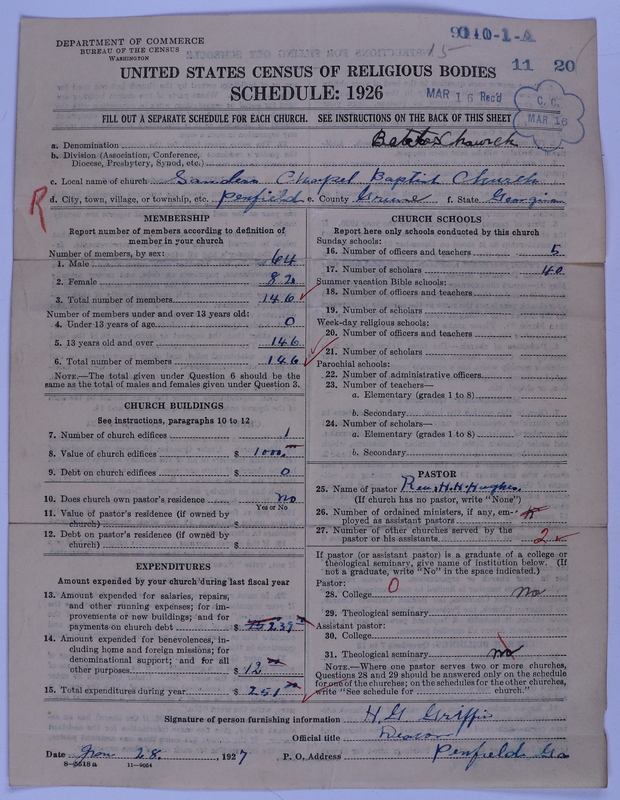 DEPARTMENT OF COMMERCE
BUREAU OF THE CENSUS
WASHINGTON
9010-1-A
15
11 20
UNITED STATES CENSUS OF RELIGIOUS BODIES
SCHEDULE: 1926
MAR 16 Rec'd
C. C.
MAR 16
FILL OUT A SEPARATE SCHEDULE FOR EACH CHURCH. SEE INSTRUCTIONS ON THE BACK OF THIS SHEET
a. Denomination Church
b. Division (Association, Conference, Diocese, Presbytery, Synod, etc.)
c. Local name of church Sanders Chapel Baptist Church
R
d. City, town, village, or township, etc. Penfield e. County f. State
MEMBERSHIP
Report number of members according to definition of member in your church
Number of members, by sex:
1. Male 64
2. Female 82
3. Total number of members 146
Number of members under and over 13 years old:
4. Under 13 years of age 0
5. 13 years old and over 146
6. Total number of members 146
NOTE.—The total given under Question 6 should be the same as the total of males and females given under Question 3.
CHURCH BUILDINGS
See instructions, paragraphs 10 to 12
7. Number of church edifices 1
8. Value of church edifices $ 1000.
9. Debt on church edifices $ 0
10. Does church own pastor's residence no
Yes or No
11. Value of pastor's residence (if owned by church) $
12. Debt on pastor's residence (if owned by church) $
EXPENDITURES
Amount expended by your church during last fiscal year
13. Amount expended for salaries, repairs, and other running expenses; for improvements or new buildings; and for payments on church debt $ 239
14. Amount expended for benevolences, including home and foreign missions; for denominational support; and for all other purposes $ 12
15. Total expenditures during year $ 251
CHURCH SCHOOLS
Report here only schools conducted by this church
Sunday schools:
16. Number of officers and teachers 5
17. Number of scholars 40
Summer vacation Bible schools:
18. Number of officers and teachers
19. Number of scholars
Week-day religious schools:
20. Number of officers and teachers
21. Number of scholars
Parochial schools:
22. Number of administrative officers
23. Number of teachers—
a. Elementary (grades 1 to 8)
b. Secondary
24. Number of scholars—
a. Elementary (grades 1 to 8)
b. Secondary
PASTOR
25. Name of pastor Rev. H. H. Hughes.
(If church has no pastor, write "None")
26. Number of ordained ministers, if any, employed as assistant pastors
27. Number of other churches served by the pastor or his assistants 2
If pastor (or assistant pastor) is a graduate of a college or theological seminary, give name of institution below. (If not a graduate, write "No" in the space indicated.)
Pastor:
28. College 0 no
29. Theological seminary
Assistant pastor:
30. College
31. Theological seminary no
NOTE.—Where one pastor serves two or more churches, Questions 28 and 29 should be answered only on the schedule for one of the churches; on the schedules for the other churches, write "See schedule for church."
Signature of person furnishing information H. G. Griffin
Official title Deacon
Date 28, 1927 P. O. Address Penfield Ga
8-5518a 11-9054